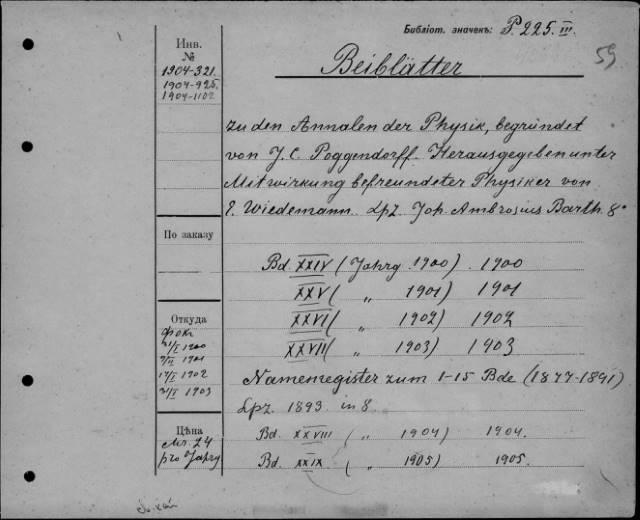 Библіот. значекъ: P. 225. III.
59
Инв.
№
1904-321.
1904-925.
1904-1102
Beiblätter
zu den Annalen der Physik, begründet
von J. C. Poggendorff. Herausgegeben unter
Mitwirkung befreundeter Physiker von
E. Wiedemann. Lpz. Joh. Ambrosius Barth 8°
По заказу
Bd. XXIV (Jahrg. 1900) 1900
XXV ( „ 1901) 1901
XXVI ( „ 1902) 1902
XXVII ( „ 1903) 1903
Namenregister zum 1-15 Bde (1877-1891)
Lpz. 1893 in 8.
Bd. XXVIII ( „ 1904) 1904.
Bd. XXIX ( „ 1905) 1905.
Откуда
Фокъ
1900
1901
1902
1903
Цѣна
Mr. 24
pro Jahrg